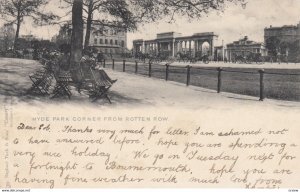 HYDE PARK CORNER FROM ROTTEN ROW
Dear Eth. Thanks very much for letter. I am ashamed not
to have answered before. hope you are spending a
very nice holiday. We go in Tuesday next for
a fortnight to Bournemouth, hope you are having
fine weather with much love from